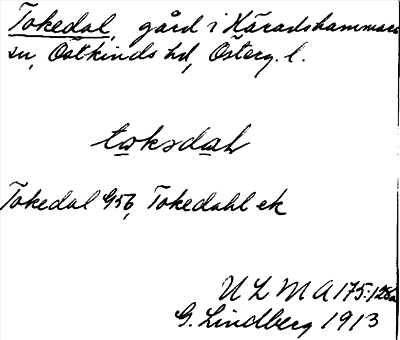 Tokedal, gård i Häradshammars
sn, Östkinds hd, Österg. l.
tωksdαl
Tokedal G56, Tokedahl ek
ULMA 175:128a
G. Lindberg 1913